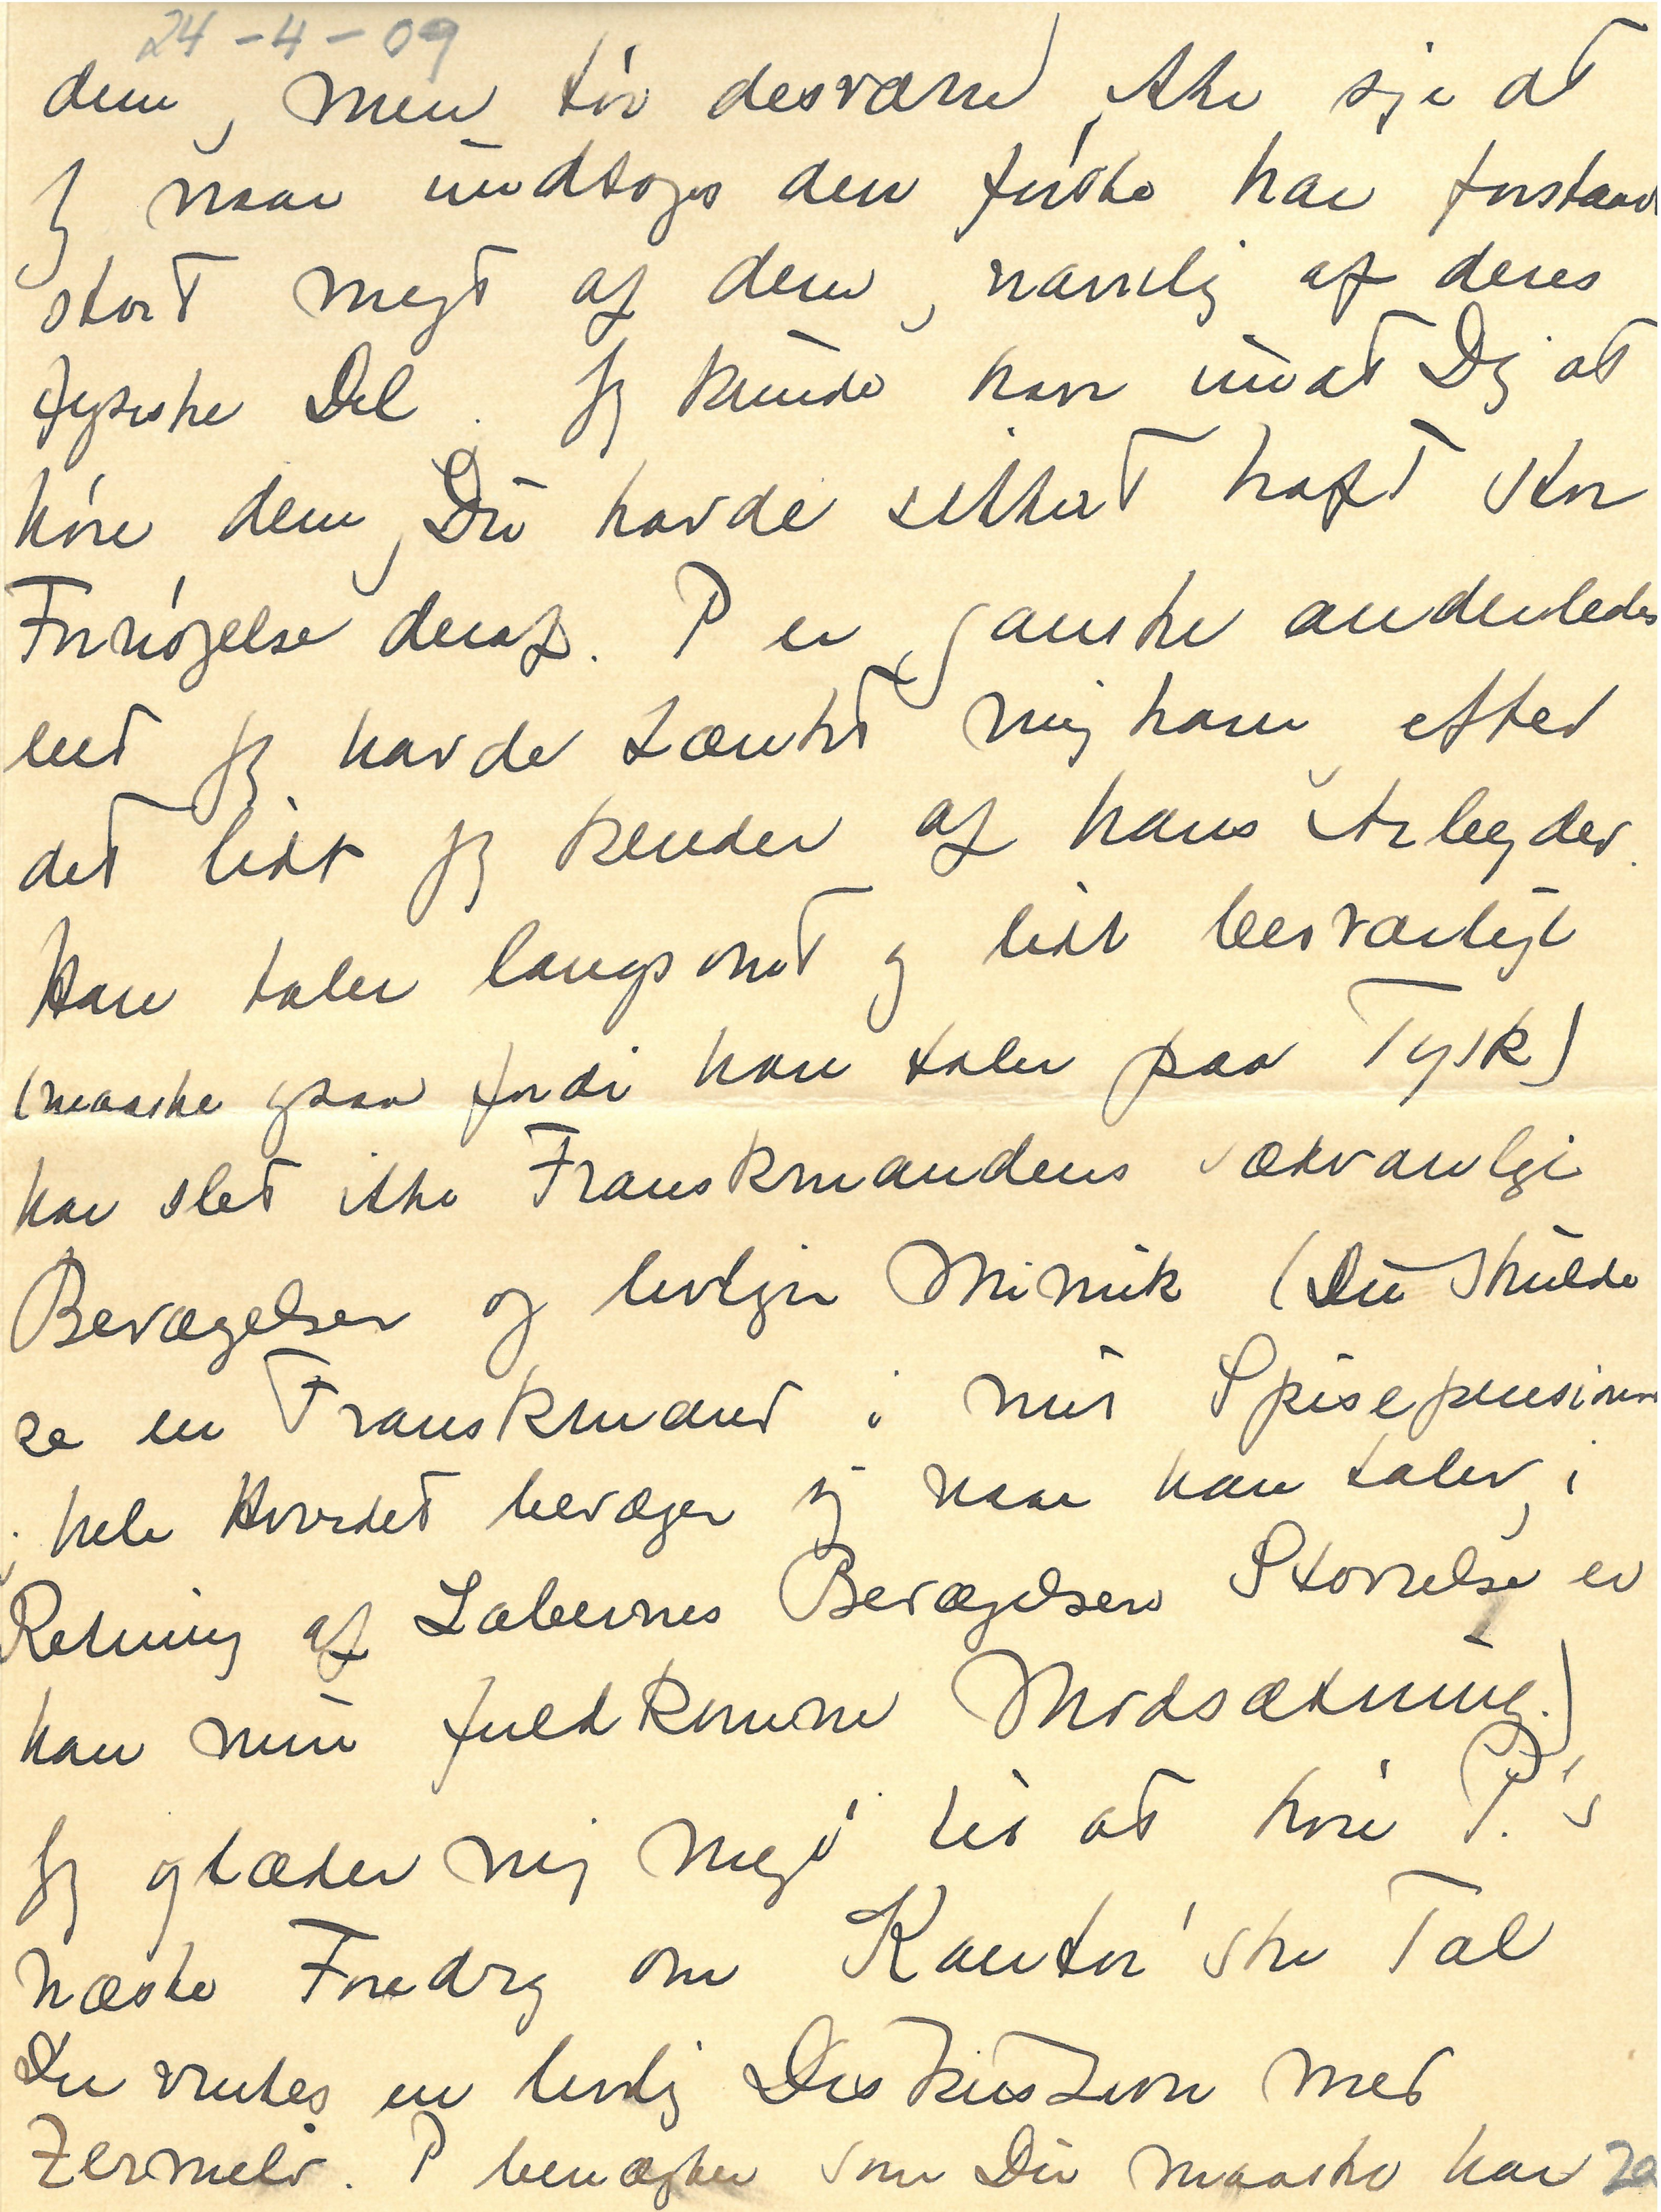 24-4-09
dem, men tör desværre ikke sige at
jeg naar undtages den förste har forstaaet
stort megt af dem, navnlig af deres
fysiske Del. Jeg kunde have undt Dig at
höre dem, Du havde sikkert haft stor
Fornöjelse deraf. P er ganske anderledes
end jeg havde tænkt mig ham efter
det lidt jeg kender af hans Arbejder.
Han taler langsomt og lidt besværligt
(maaske ogsaa fordi han taler paa Tysk)
har slet ikke Franskmandens sædvanlige
Bevægelser og livlige Mimik (Du skulde
se en Franskmand i mit Spisepension
hele Hovedet bevæger sig naar han taler, i
Retning af Læbernes Bevægelsers Störrelse er
han min fuldkomne Modsætning.)
Jeg glæder mig meget til at höre P.'s
næste Foredrag om Kantor'ske Tal
Der ventes en livlig Diskussion med
Zermelo. P benægter som Du maaske har